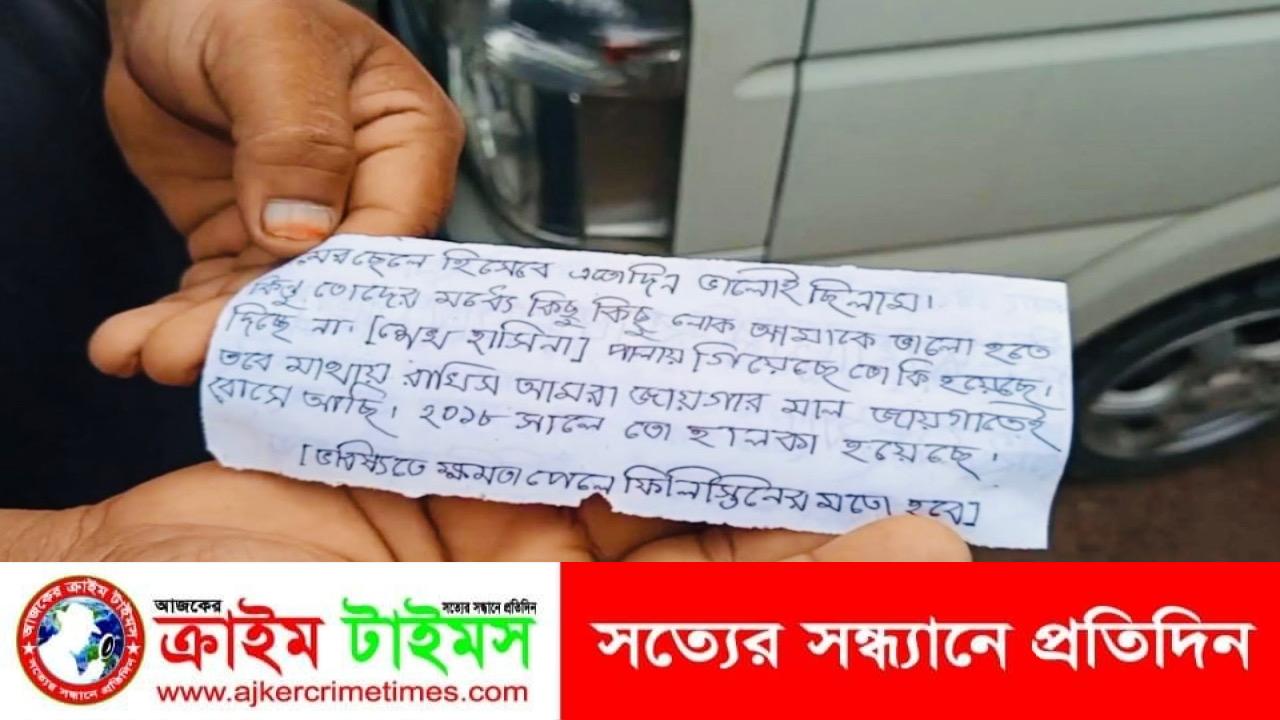 মেরছেলে হিসেবে এতোদিন ভালোই ছিলাম।
কিন্তু তোদের মধ্যে কিছু কিছু লোক আমাকে ভালো হতে
দিচ্ছে না। [শেখ হাসিনা] পালায় গিয়েছে তো কি হয়েছে।
তবে মাথায় রাখিস আমরা জায়গার মাল জায়গাতেই
বোসে আছি। ২০১৮ সালে তো হালকা হয়েছে।
[ভবিষ্যিতে ক্ষমতা পেলে ফিলিস্তিনের মতো হবে]
আজকের ক্রাইম টাইমস
সত্যের সন্ধানে প্রতিদিন
আজকের
সত্যের সন্ধানে প্রতিদিন
ক্রাইম টাইমস
www.ajkercrimetimes.com
সত্যের সন্ধ্যানে প্রতিদিন